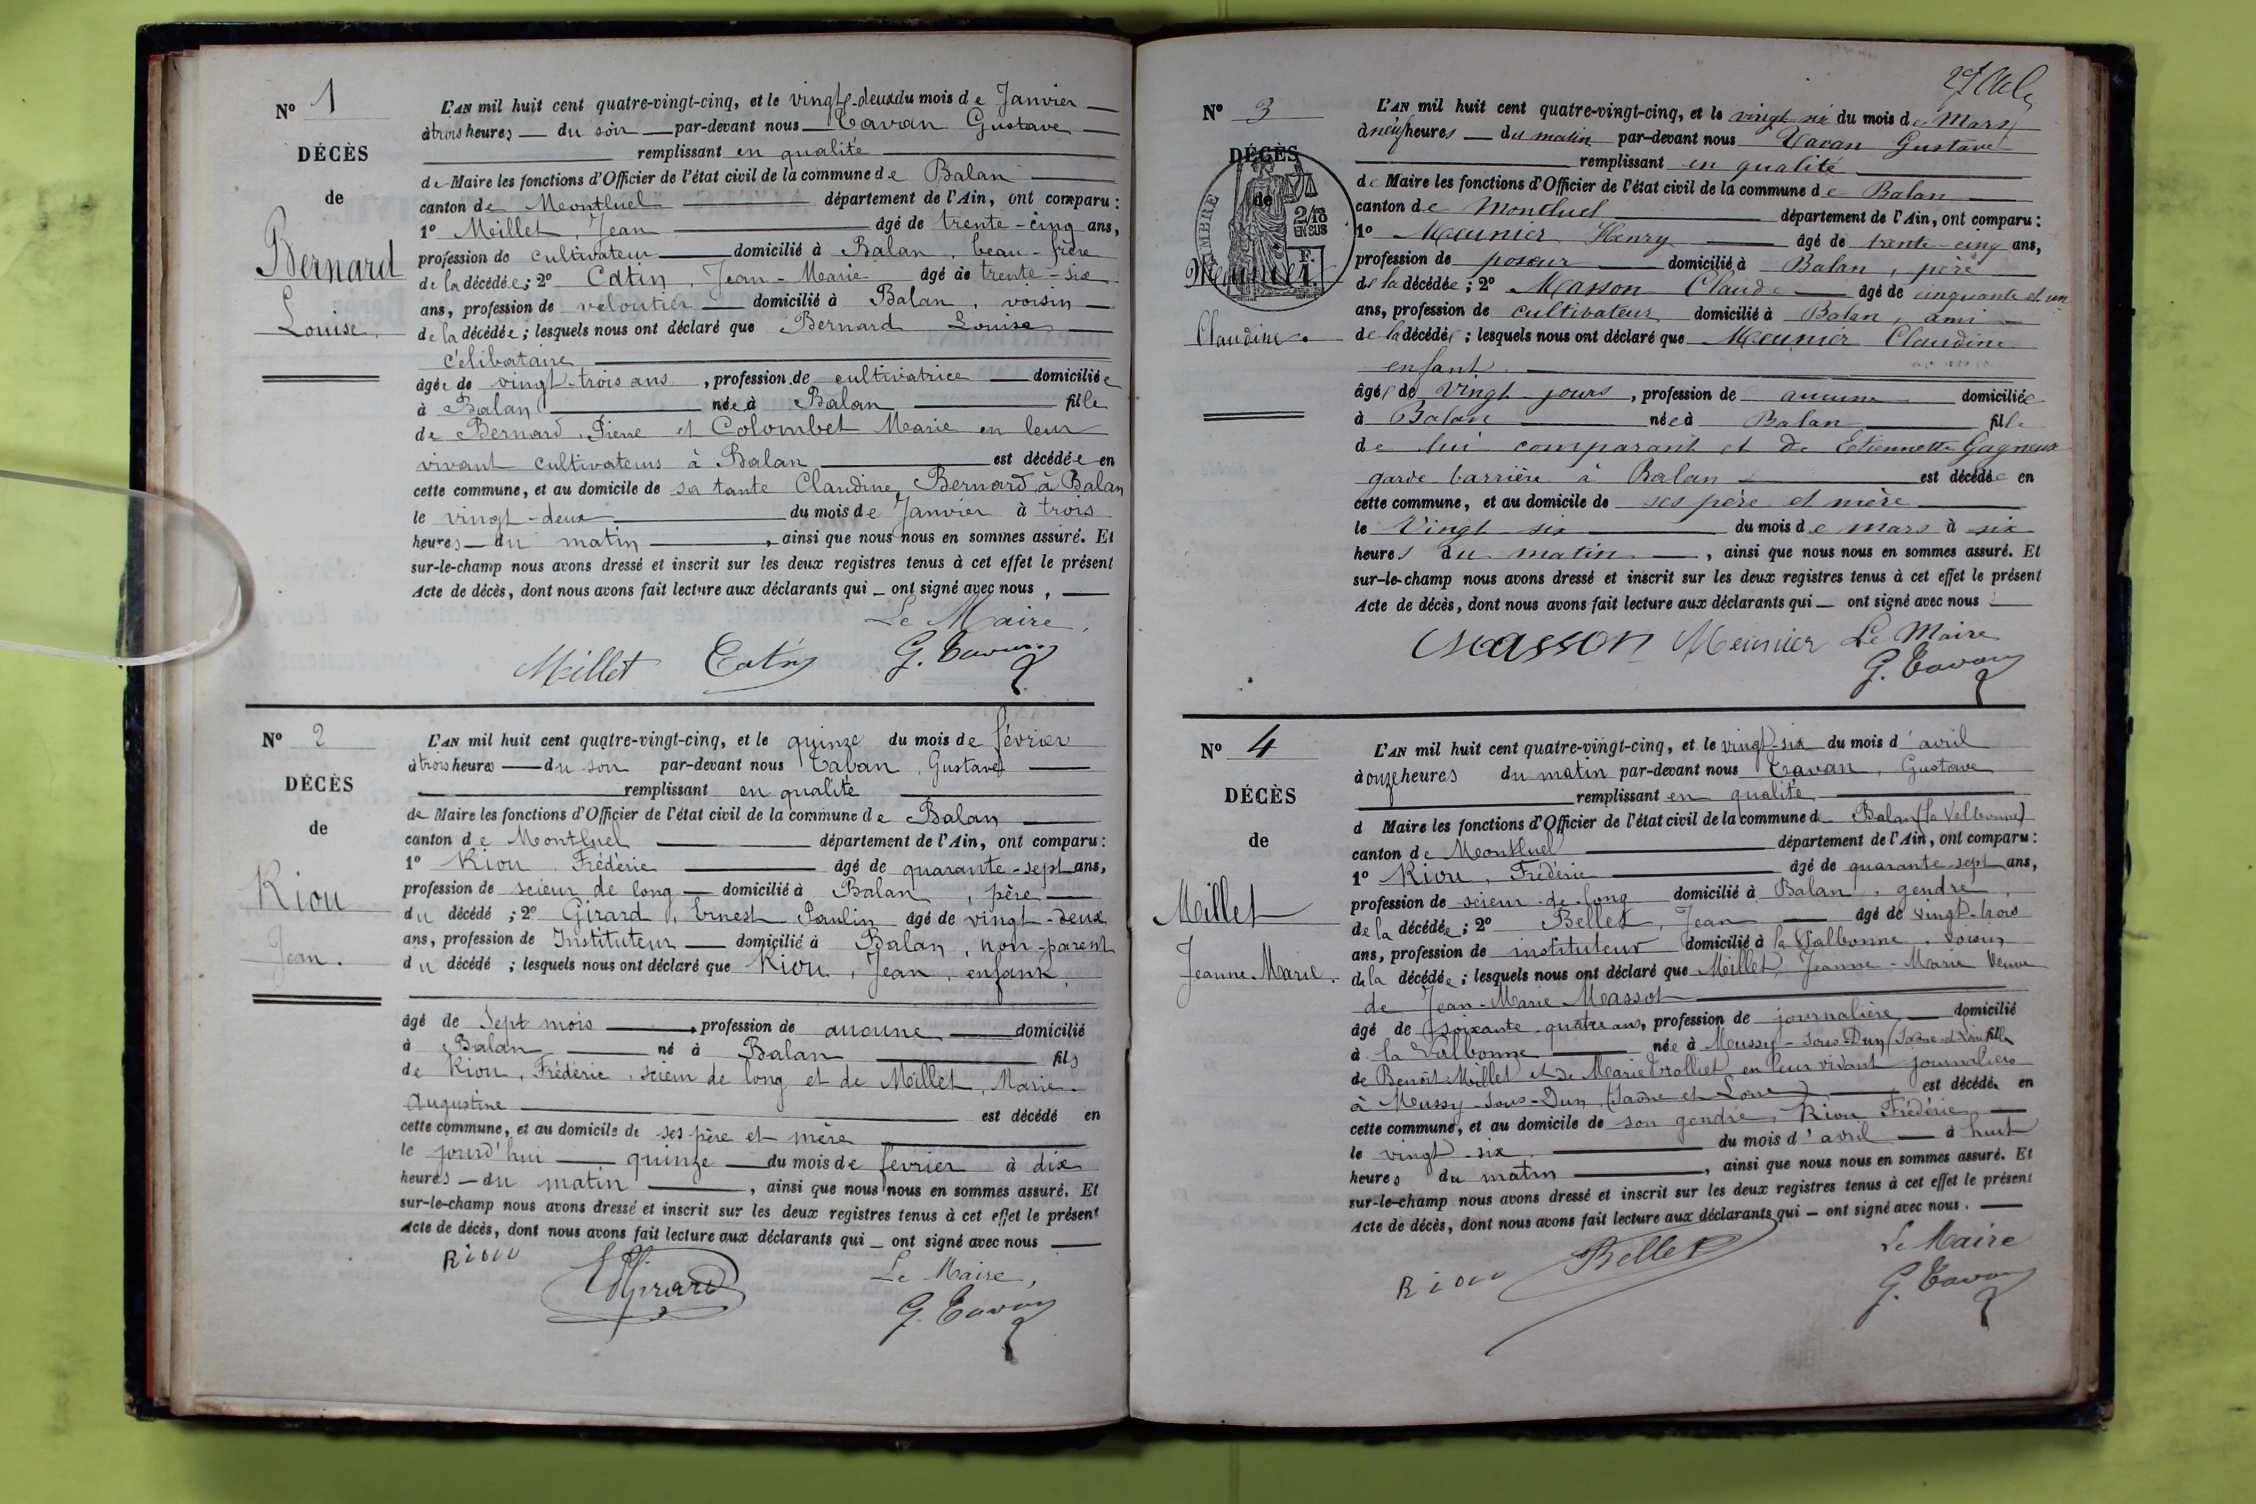 N° 1
DÉCÈS
de
Bernard
Louise.
L'AN mil huit cent quatre-vingt-cinq, et le vingt-deux du mois de Janvier
à trois heures du soir par-devant nous Tavan Gustave
remplissant en qualité
de Maire les fonctions d'Officier de l'état civil de la commune de Balan
canton de Montluel département de l'Ain, ont comparu :
1° Meillet, Jean âgé de trente-cinq ans,
profession de cultivateur domicilié à Balan, beau-frère
de la décédée ; 2° Catin, Jean-Marie âgé de trente-six
ans, profession de veloutier domicilié à Balan, voisin
de la décédée ; lesquels nous ont déclaré que Bernard Louise
célibataire
âgée de vingt-trois ans, profession de cultivatrice domiciliée
à Balan née à Balan fille
de Bernard, Pierre et Colombet Marie en leur
vivant cultivateurs à Balan est décédée en
cette commune, et au domicile de sa tante Claudine, Bernard, à Balan
le vingt-deux du mois de Janvier à trois
heures du matin, ainsi que nous nous en sommes assuré. Et
sur-le-champ nous avons dressé et inscrit sur les deux registres tenus à cet effet le présent
Acte de décès, dont nous avons fait lecture aux déclarants qui ont signé avec nous,
Le Maire,
Meillet Catin G. Tavan
N° 2
DÉCÈS
de
Riou
Jean.
L'AN mil huit cent quatre-vingt-cinq, et le quinze du mois de février
à trois heures du soir par-devant nous Tavan, Gustave
remplissant en qualité
de Maire les fonctions d'Officier de l'état civil de la commune de Balan
canton de Montluel département de l'Ain, ont comparu :
1° Riou Frédéric âgé de quarante-sept ans,
profession de scieur de long domicilié à Balan, père
du décédé ; 2° Girard, Ernest Paulin âgé de vingt-deux
ans, profession de Instituteur domicilié à Balan, non-parent
du décédé ; lesquels nous ont déclaré que Riou, Jean, enfant
âgé de Sept mois, profession de aucune domicilié
à Balan né à Balan fils
de Riou, Frédéric, scieur de long et de Meillet, Marie
Augustine est décédé en
cette commune, et au domicile de ses père et mère
le jourd'hui quinze du mois de février à dix
heures du matin, ainsi que nous nous en sommes assuré. Et
sur-le-champ nous avons dressé et inscrit sur les deux registres tenus à cet effet le présent
Acte de décès, dont nous avons fait lecture aux déclarants qui ont signé avec nous
Riou Girard Le Maire,
G. Tavan
N° 3
DÉCÈS
de
Meunier
Claudine.
TIMBRE
2/10
EN SUS
F.
L'AN mil huit cent quatre-vingt-cinq, et le vingt six du mois de Mars
à neuf heures du matin par-devant nous Tavan Gustave
remplissant en qualité
de Maire les fonctions d'Officier de l'état civil de la commune de Balan
canton de Montluel département de l'Ain, ont comparu :
1° Meunier Henry âgé de trente-cinq ans,
profession de poseur domicilié à Balan, père
de la décédée ; 2° Masson Claude âgé de cinquante et un
ans, profession de cultivateur domicilié à Balan, ami
de la décédée ; lesquels nous ont déclaré que Meunier Claudine
enfant
âgée de vingt jours, profession de aucune domiciliée
à Balan née à Balan fille
de lui comparant et de Etiennette Gagneur
garde barrière à Balan est décédée en
cette commune, et au domicile de ses père et mère
le Vingt six du mois de mars à six
heures du matin, ainsi que nous nous en sommes assuré. Et
sur-le-champ nous avons dressé et inscrit sur les deux registres tenus à cet effet le présent
Acte de décès, dont nous avons fait lecture aux déclarants qui ont signé avec nous
Masson Meunier Le Maire
G. Tavan
N° 4
DÉCÈS
de
Meillet
Jeanne Marie.
L'AN mil huit cent quatre-vingt-cinq, et le vingt-six du mois d'avril
à onze heures du matin par-devant nous Tavan, Gustave
remplissant en qualité
d Maire les fonctions d'Officier de l'état civil de la commune d Balan (la Valbonne)
canton de Montluel département de l'Ain, ont comparu :
1° Riou, Frédéric âgé de quarante-sept ans,
profession de scieur-de-long domicilié à Balan, gendre
de la décédée ; 2° Bellet, Jean âgé de vingt-trois
ans, profession de instituteur domicilié à la Valbonne, voisin
de la décédée ; lesquels nous ont déclaré que Meillet, Jeanne-Marie Veuve
de Jean-Marie Massot
âgé de soixante-quatre ans, profession de journalière domicilié
à la Valbonne née à Mussy-sous-Dun (Saône et Loire) fille
de Benoît Meillet et de Marie Trolliet en leur vivant journaliers
à Mussy-sous-Dun (Saône et Loire) est décédée en
cette commune, et au domicile de son gendre, Riou Frédéric,
le vingt-six du mois d'avril à huit
heures du matin, ainsi que nous nous en sommes assuré. Et
sur-le-champ nous avons dressé et inscrit sur les deux registres tenus à cet effet le présent
Acte de décès, dont nous avons fait lecture aux déclarants qui ont signé avec nous.
Riou Bellet Le Maire
G. Tavan